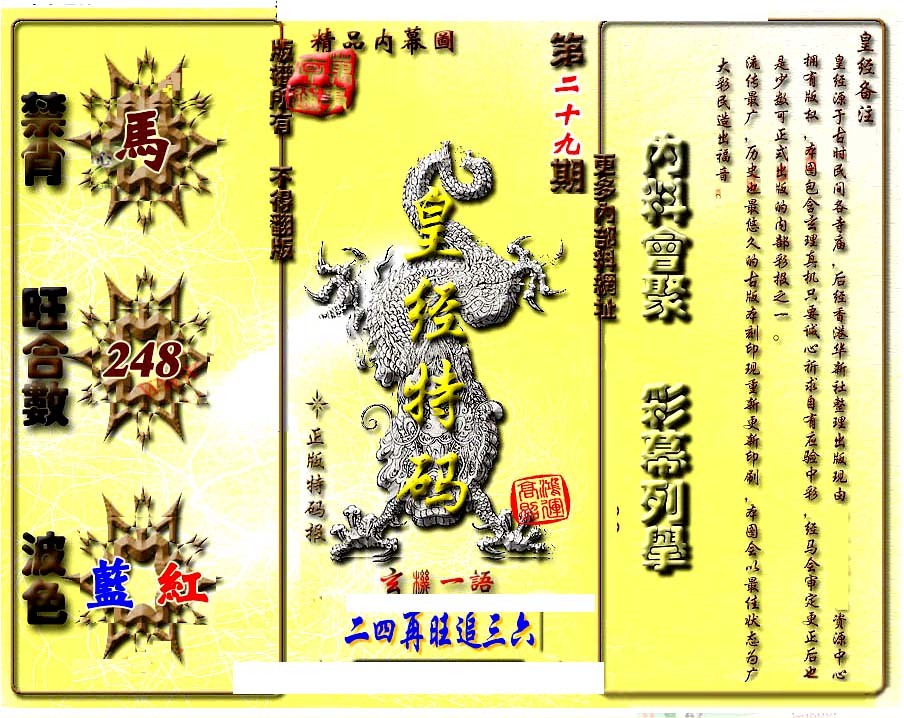 皇经备注
皇经源于古时民间各寺庙,后经香港华新社整理出版现由 资源中心
拥有版权,本图包含玄理真机只要诚心祈求自有应验中彩,经马会审定更正后也
是少数可正式出版的内部彩报之一。
流传最广,历史也最悠久的古版本刻印现重新更新印刷,本图会以最佳状态为广
大彩民造出福音
內料會聚
彩幕列舉
更多內部料網址
第二十九期
精品内幕圖
皇经特码
正版特码报
鴻運高照
玄機一語
二四再旺追三六
版權所有 不得翻版
禁肖
馬
旺合數
248
波色
藍 紅